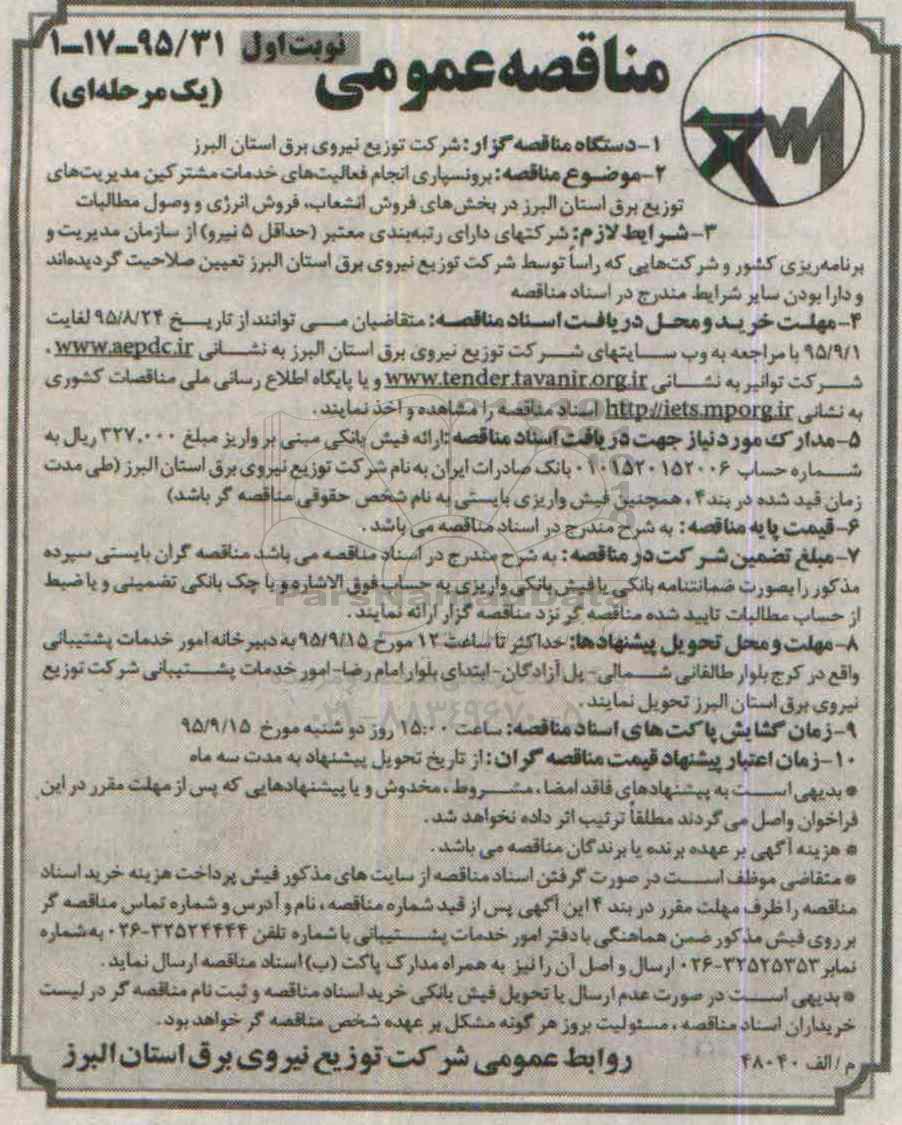 مناقصه عمومی
نوبت اول
۱-۱۷-۹۵/۳۱
(یک مرحله‌ای)
۱-دستگاه مناقصه گزار: شرکت توزیع نیروی برق استان البرز
۲-موضوع مناقصه: برونسپاری انجام فعالیت‌های خدمات مشترکین مدیریت‌های
توزیع برق استان البرز در بخش‌های فروش انشعاب، فروش انرژی و وصول مطالبات
۳-شرایط لازم: شرکتهای دارای رتبه‌بندی معتبر (حداقل ۵ نیرو) از سازمان مدیریت و
برنامه‌ریزی کشور و شرکت‌هایی که راساً توسط شرکت توزیع نیروی برق استان البرز تعیین صلاحیت گردیده‌اند
و دارا بودن سایر شرایط مندرج در اسناد مناقصه
۴-مهلت خرید و محل دریافت اسناد مناقصه: متقاضیان می توانند از تاریخ ۹۵/۸/۲۴ لغایت
۹۵/۹/۱ با مراجعه به وب سایتهای شرکت توزیع نیروی برق استان البرز به نشانی www.aepdc.ir ،
شرکت توانیر به نشانی www.tender.tavanir.org.ir و یا پایگاه اطلاع رسانی ملی مناقصات کشوری
به نشانی http://iets.mporg.ir اسناد مناقصه را مشاهده و اخذ نمایند.
۵-مدارک مورد نیاز جهت دریافت اسناد مناقصه: ارائه فیش بانکی مبنی بر واریز مبلغ ۳۲۷،۰۰۰ ریال به
شماره حساب ۰۱۰۱۵۲۰۱۵۲۰۰۶ بانک صادرات ایران به نام شرکت توزیع نیروی برق استان البرز (طی مدت
زمان قید شده در بند ۴، همچنین فیش واریزی بایستی به نام شخص حقوقی مناقصه گر باشد)
۶-قیمت پایه مناقصه: به شرح مندرج در اسناد مناقصه می باشد.
۷-مبلغ تضمین شرکت در مناقصه: به شرح مندرج در اسناد مناقصه می باشد مناقصه گران بایستی سپرده
مذکور را بصورت ضمانتنامه بانکی یا فیش بانکی واریزی به حساب فوق الاشاره و یا چک بانکی تضمینی و یا ضبط
از حساب مطالبات تایید شده مناقصه گر نزد مناقصه گزار ارائه نمایند.
۸-مهلت و محل تحویل پیشنهادها: حداکثر تا ساعت ۱۲ مورخ ۹۵/۹/۱۵ به دبیرخانه امور خدمات پشتیبانی
واقع در کرج بلوار طالقانی شمالی- پل آزادگان- ابتدای بلوار امام رضا- امور خدمات پشتیبانی شرکت توزیع
نیروی برق استان البرز تحویل نمایند.
۹-زمان گشایش پاکت های اسناد مناقصه: ساعت ۱۵:۰۰ روز دو شنبه مورخ ۹۵/۹/۱۵
۱۰-زمان اعتبار پیشنهاد قیمت مناقصه گران: از تاریخ تحویل پیشنهاد به مدت سه ماه
* بدیهی است به پیشنهادهای فاقد امضا، مشروط، مخدوش و یا پیشنهادهایی که پس از مهلت مقرر در این
فراخوان واصل می گردند مطلقاً ترتیب اثر داده نخواهد شد.
* هزینه آگهی بر عهده برنده یا برندگان مناقصه می باشد.
* متقاضی موظف است در صورت گرفتن اسناد مناقصه از سایت های مذکور فیش پرداخت هزینه خرید اسناد
مناقصه را ظرف مهلت مقرر در بند ۴ این آگهی پس از قید شماره مناقصه، نام و آدرس و شماره تماس مناقصه گر
بر روی فیش مذکور ضمن هماهنگی با دفتر امور خدمات پشتیبانی با شماره تلفن ۳۲۵۲۴۴۴۴-۰۲۶ به شماره
نمابر ۳۲۵۲۵۳۵۳-۰۲۶ ارسال و اصل آن را نیز به همراه مدارک پاکت (ب) اسناد مناقصه ارسال نماید.
* بدیهی است در صورت عدم ارسال یا تحویل فیش بانکی خرید اسناد مناقصه و ثبت نام مناقصه گر در لیست
خریداران اسناد مناقصه، مسئولیت بروز هر گونه مشکل بر عهده شخص مناقصه گر خواهد بود.
م / الف ۴۸۰۴۰
روابط عمومی شرکت توزیع نیروی برق استان البرز